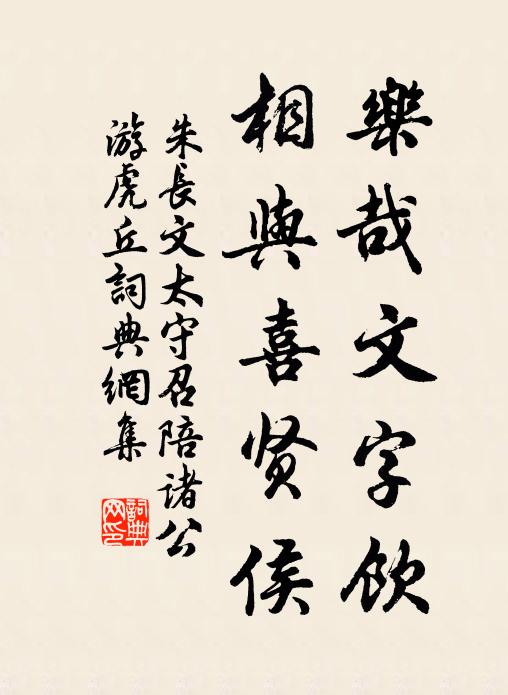 樂哉文字飲
相與喜贤侯
朱長文太守召陪諸公
游虎丘詞典網集
詞典网印